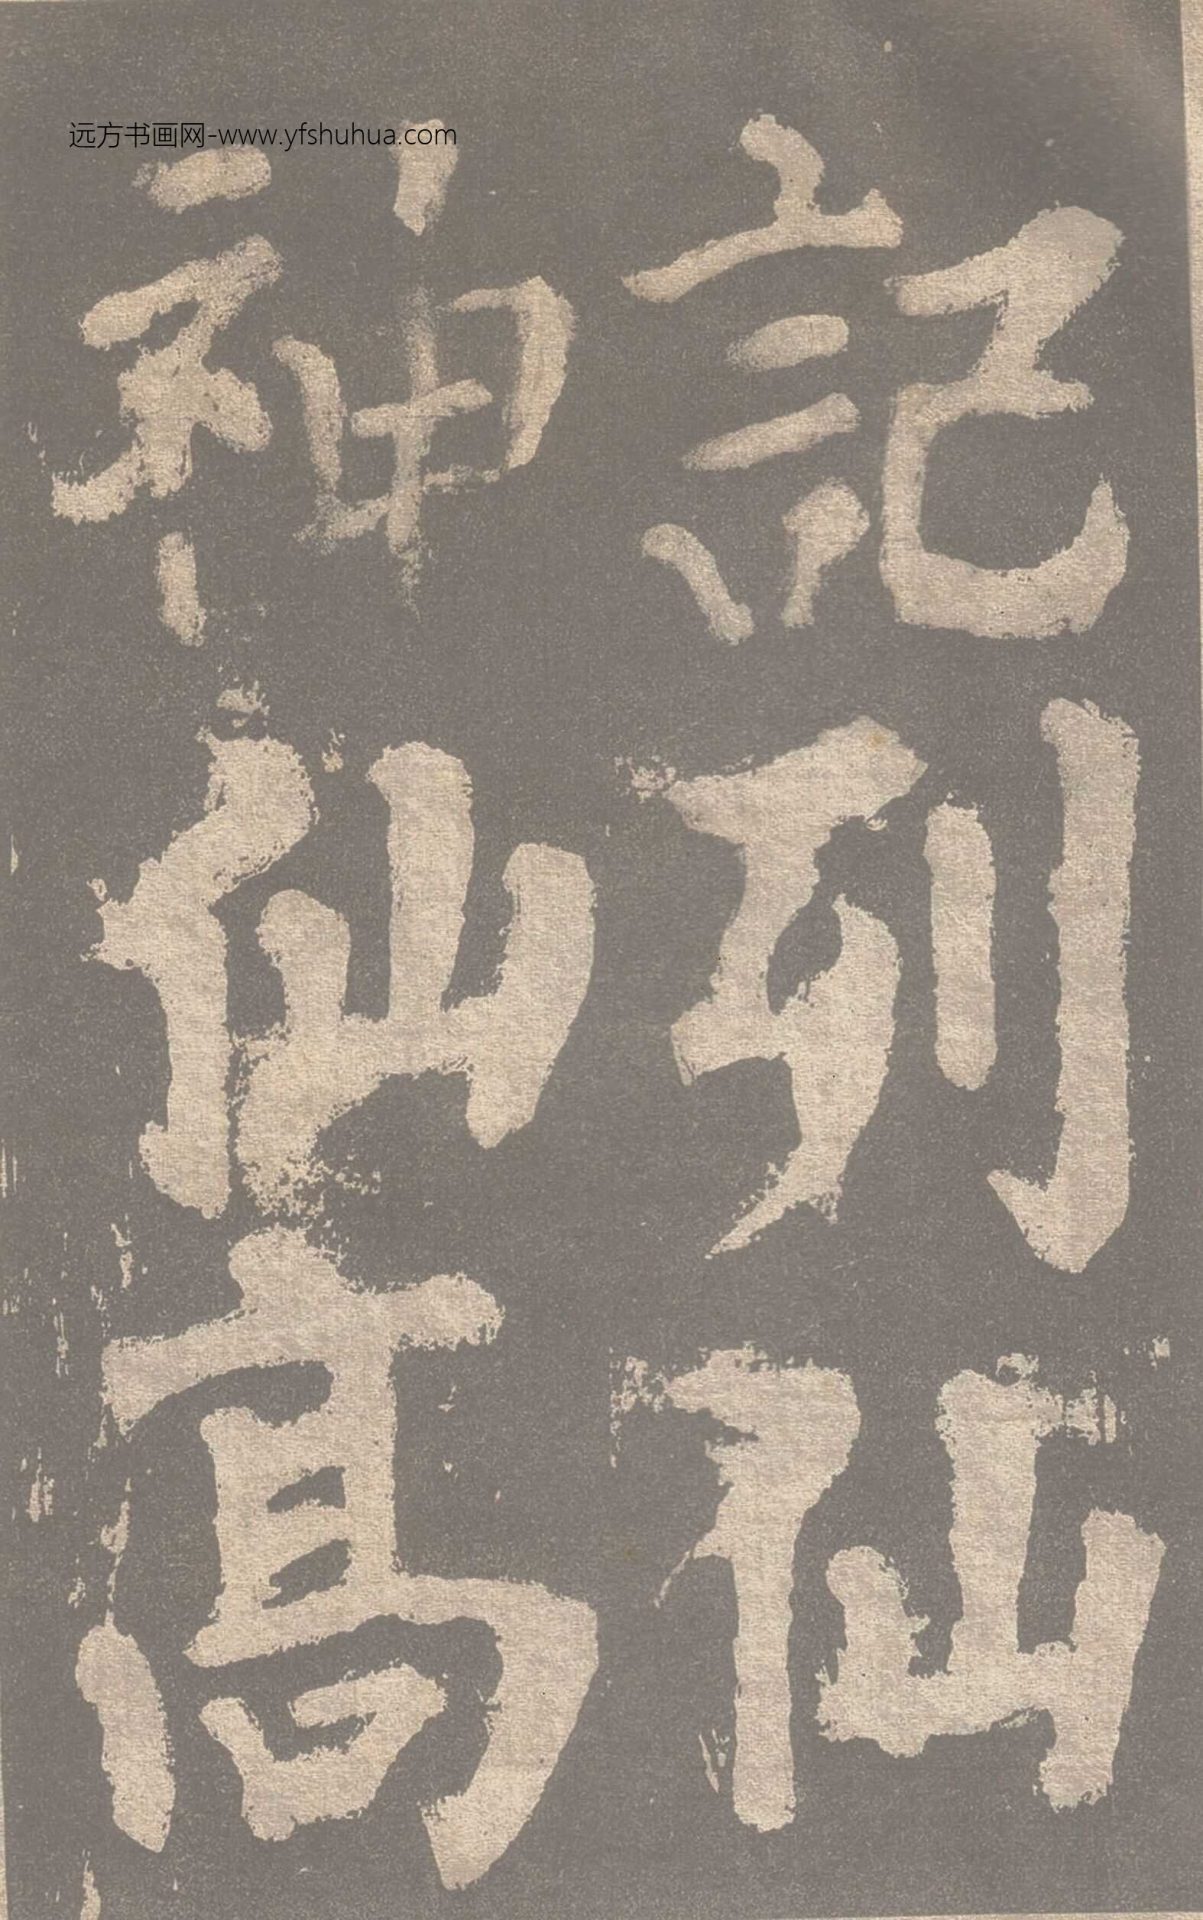 远方书画网-www.yfshuhua.com
記列仙
神仙高